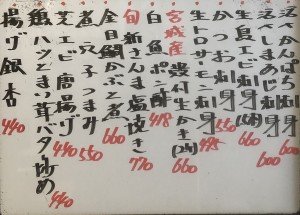 かんぱち刺身 600
〆さんまめじ刺身 600
生鳥エビ刺身(5本) 660
かつお刺身 550
生トロサーモン刺身 495
宮城産殻付生かき(2ヶ) 660
白魚ポン酢 418
旬新さんま塩焼き 770
金目鯛かぶと煮 660
煮穴子つまみ 550
芝エビ唐揚げ 440
魚ハツとまい茸バタ炒め 440
揚げ銀杏 440